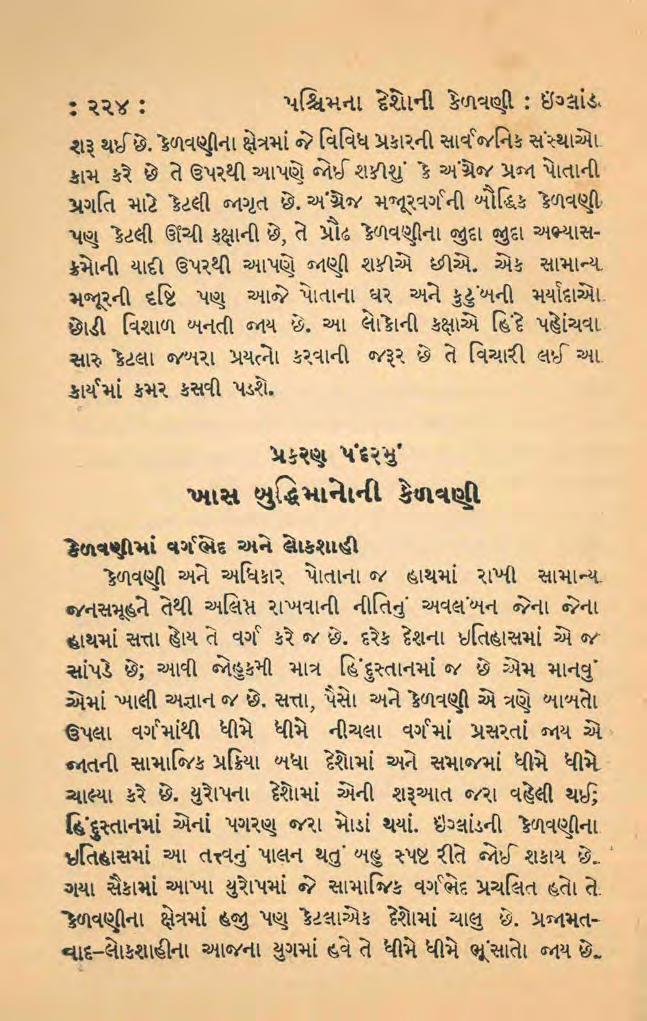 : ૨૨૪ : પશ્ચિમના દેશોની કેળવણી : ઇંગ્લાંડ.
શરૂ થઈ છે. કેળવણીના ક્ષેત્રમાં જે વિવિધ પ્રકારની સાર્વજનિક સંસ્થાઓ
કામ કરે છે તે ઉપરથી આપણે જોઈ શકીશું કે અંગ્રેજ પ્રજા પોતાની
પ્રગતિ માટે કેટલી જાગૃત છે. અંગ્રેજ મજૂરવર્ગની બૌદ્ધિક કેળવણી
પણ કેટલી ઊંચી કક્ષાની છે, તે પ્રૌઢ કેળવણીના જુદા જુદા અભ્યાસ-
ક્રમોની યાદી ઉપરથી આપણે જાણી શકીએ છીએ. એક સામાન્ય
મજૂરની દૃષ્ટિ પણ આજે પોતાના ઘર અને કુટુંબની મર્યાદાઓ
છોડી વિશાળ બનતી જાય છે. આ લોકોની કક્ષાએ હિંદે પહોંચવા
સારુ કેટલા જબરા પ્રયત્નો કરવાની જરૂર છે તે વિચારી લઈ આ
કાર્યમાં કમર કસવી પડશે.
પ્રકરણ પંદરમું
ખાસ બુદ્ધિમાનોની કેળવણી
કેળવણીમાં વર્ગભેદ અને લોકશાહી
કેળવણી અને અધિકાર પોતાના જ હાથમાં રાખી સામાન્ય
જનસમૂહને તેથી અલિપ્ત રાખવાની નીતિનું અવલંબન જેના જેના
હાથમાં સત્તા હોય તે વર્ગ કરે જ છે. દરેક દેશના ઇતિહાસમાં એ જ
સાંપડે છે; આવી જોહુકમી માત્ર હિંદુસ્તાનમાં જ છે એમ માનવું
એમાં ખાલી અજ્ઞાન જ છે. સત્તા, પૈસો અને કેળવણી એ ત્રણે બાબતો
ઉપલા વર્ગમાંથી ધીમે ધીમે નીચલા વર્ગમાં પ્રસરતાં જાય એ
જાતની સામાજિક પ્રક્રિયા બધા દેશોમાં અને સમાજમાં ધીમે ધીમે
ચાલ્યા કરે છે. યુરોપના દેશોમાં એની શરૂઆત જરા વહેલી થઈ;
હિંદુસ્તાનમાં એનાં પગરણ જરા મોડાં થયાં. ઇંગ્લાંડની કેળવણીના
ઇતિહાસમાં આ તત્ત્વનું પાલન થતું બહુ સ્પષ્ટ રીતે જોઈ શકાય છે.
ગયા સૈકામાં આખા યુરોપમાં જે સામાજિક વર્ગભેદ પ્રચલિત હતો તે
કેળવણીના ક્ષેત્રમાં હજુ પણ કેટલાએક દેશોમાં ચાલુ છે. પ્રજામત-
વાદ–લોકશાહીના આજના યુગમાં હવે તે ધીમે ધીમે ભૂંસાતો જાય છે.